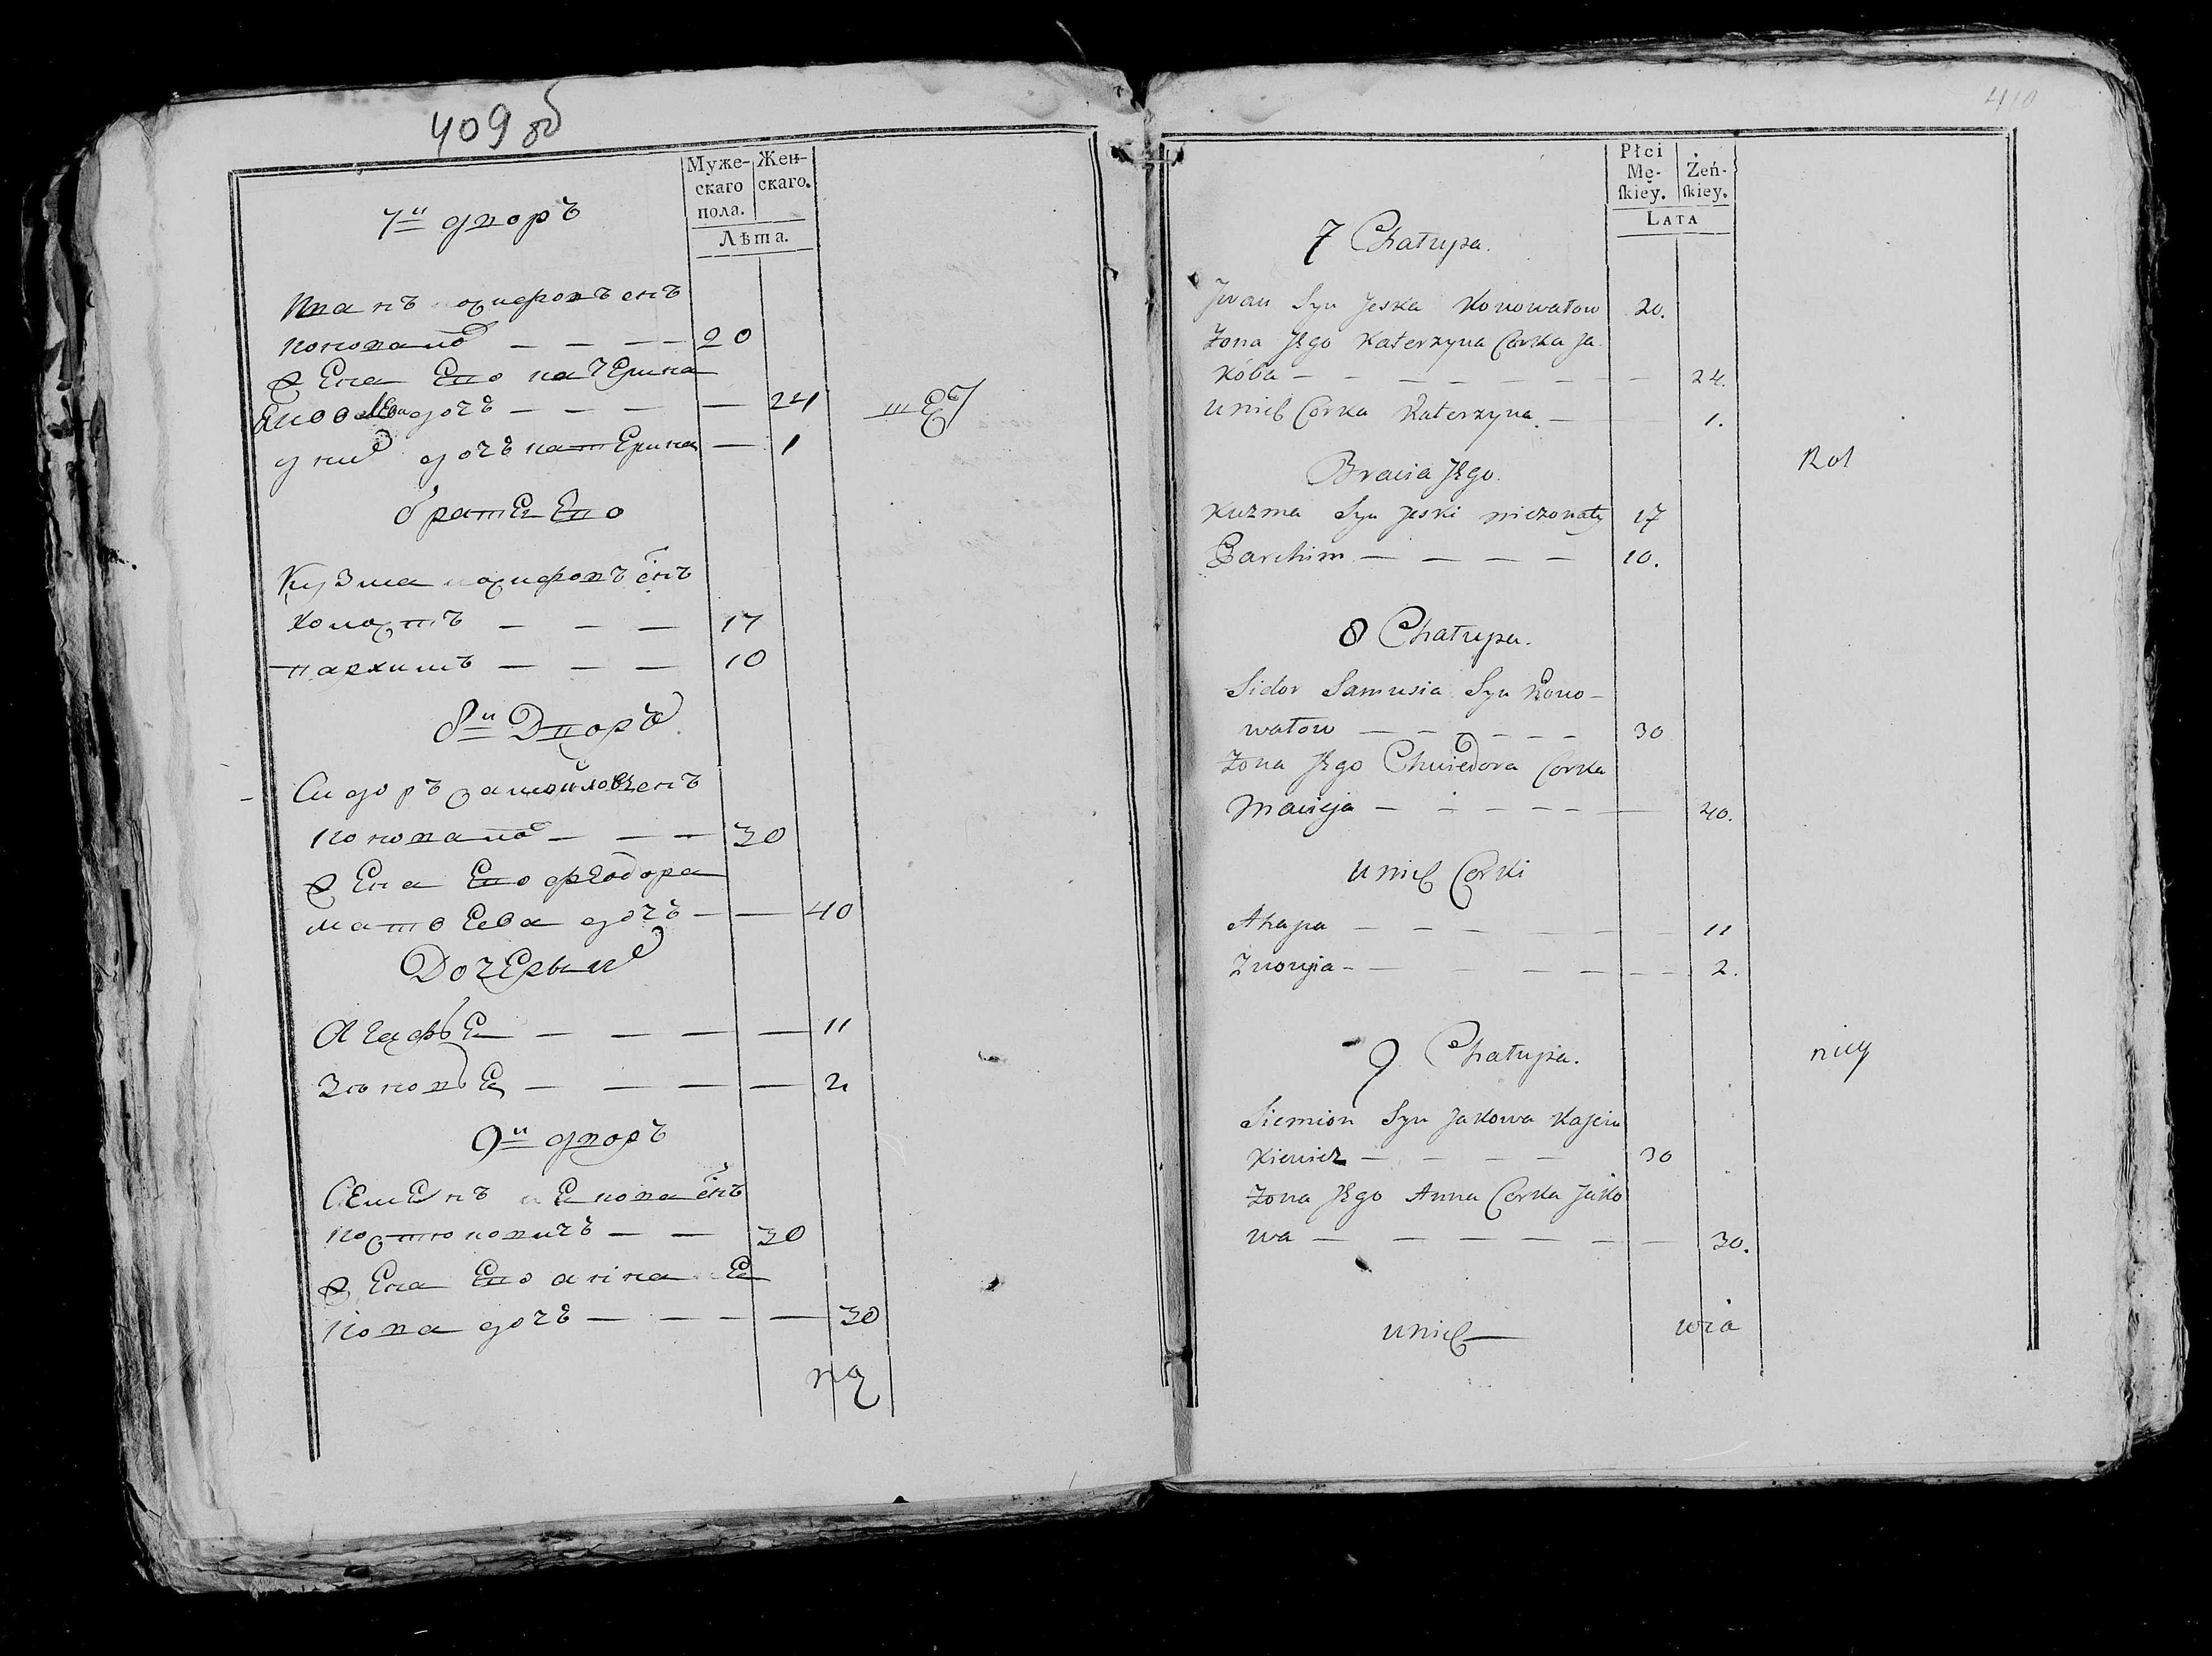 409 об
Муже-
скаго
пола.
Жен-
скаго.
Лѣта.
7й дворъ
Иванъ
коновалов — — — 20
жена Ево катерина
дочь — — — — 24
у них дочь катерина — 1
братя Ево
Кузма
холостъ — — — 17
пархимъ — — — 10
8й Дворъ
Сидоръ самойловъ сынъ
коновалов — — — 30
жена Ево феодора
матвеева дочь — — 40
Дочерьи
Агафья — — — — 11
Зиновья — — — — 2
9й дворъ
Семенъ сынъ
— — 30
жена Ево анна я
кова дочь — — — — 30
410
Płci
Mę-
ſkiey.
Żeń-
ſkiey.
LATA
7 Chałupa.
Jwan Syn Jeska Konowałow 20.
Zona Jego Katerzyna Corka Ja
koba — — — — — — — 24.
U nich Corka Katerzyna. — 1.
Bracia Jego.
Kuzma Syn Jeski niezonaty 17
Parchim — — — — 10.
Rol
8 Chałupa.
Sidor Samusia Syn Kono-
wałow — — — — — — 30
Zona Jego Chwiedora Corka
Macieja — — — — — — 40.
U nich Corki
Ahapa — — — — — — 11
Znowija — — — — — — 2.
9 Chałupa.
niczy
Siemion Syn Jakowa
30
Zona Jego Anna Corka Jako
wa — — — — — — — 30.
U nich —